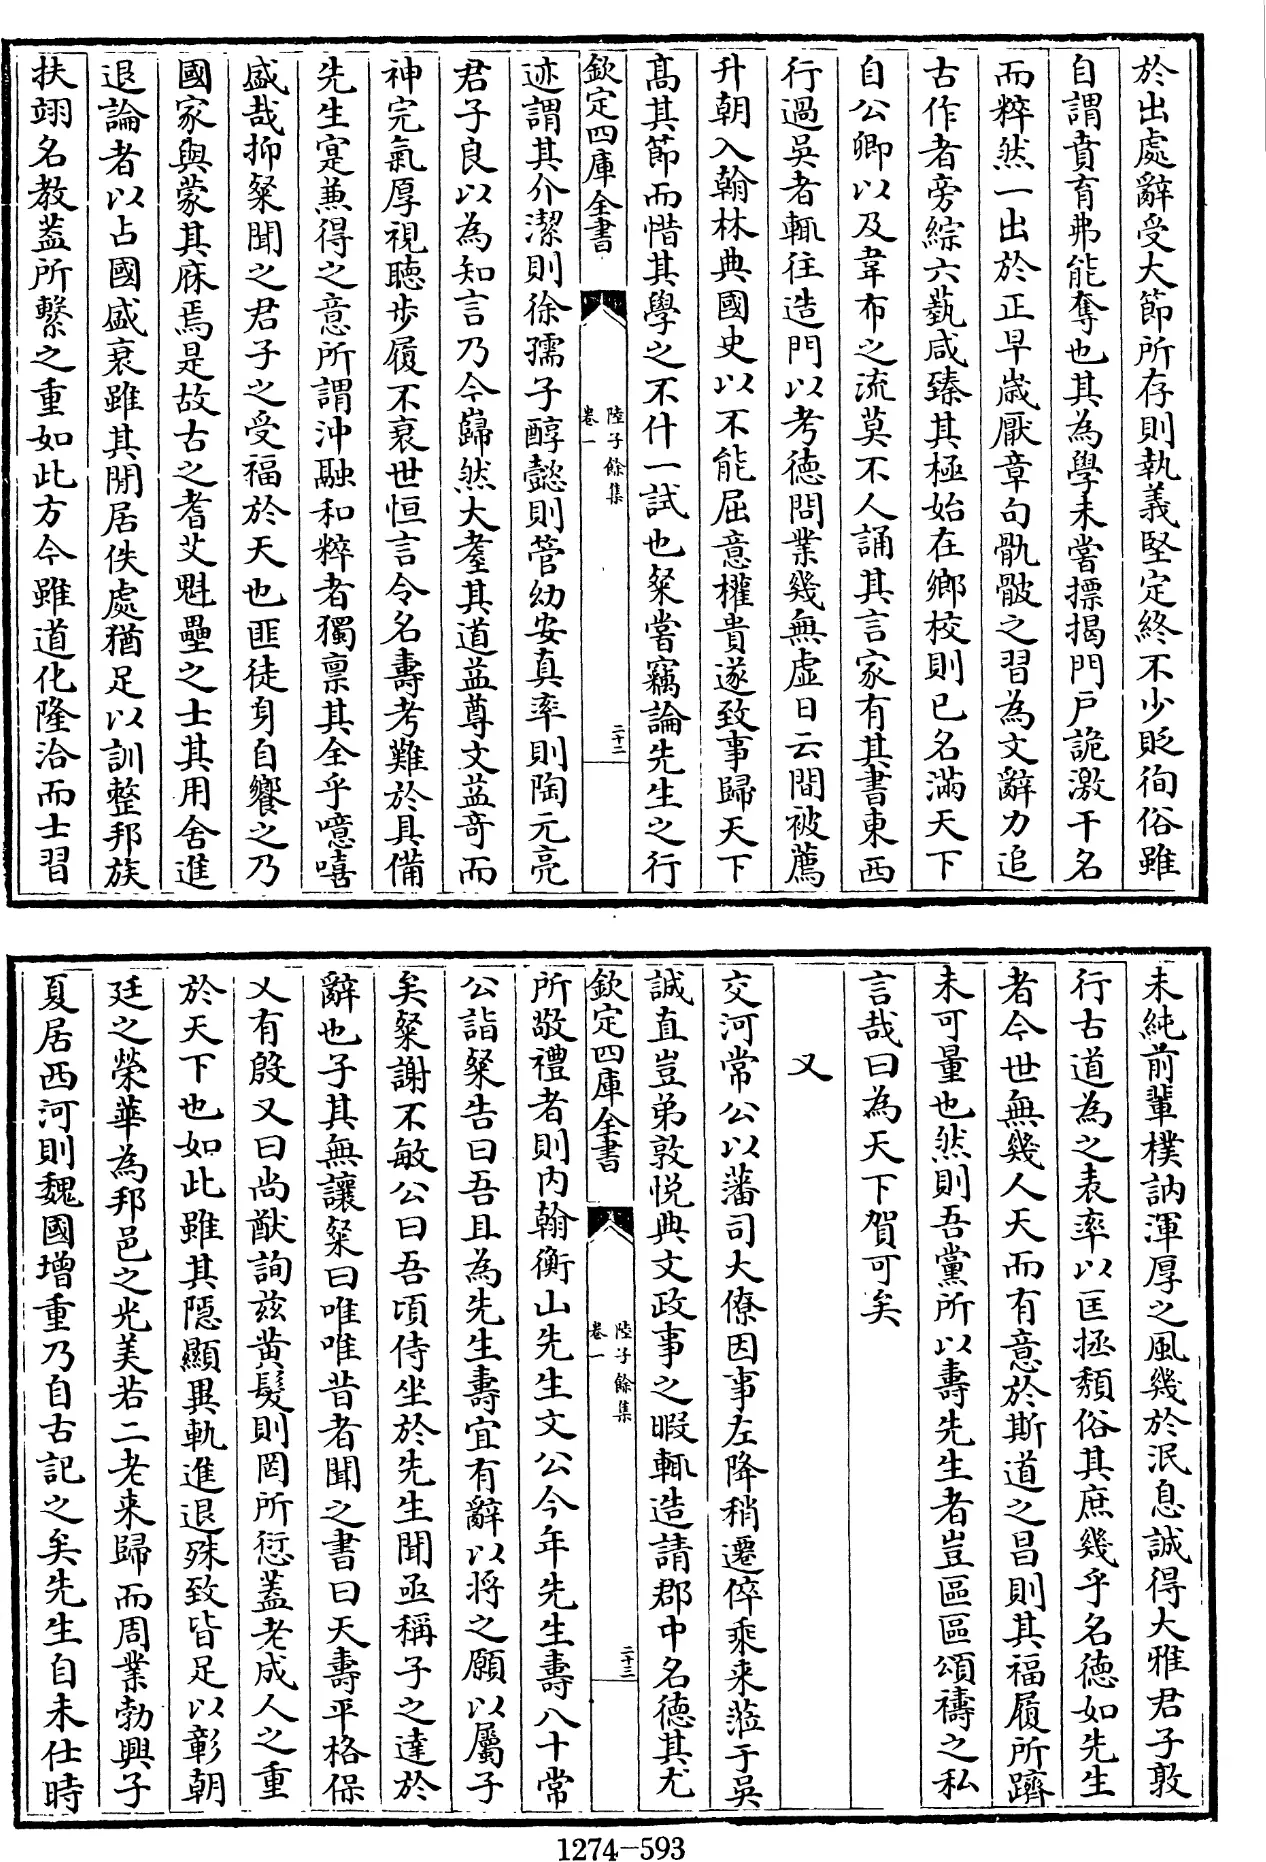 於出處辭受大節所存則執義堅定終不少貶徇俗雖
自謂賁育弗能奪也其為學未嘗摽揭門戸詭激干名
而粹然一出於正早歲厭章句骩骳之習為文辭力追
古作者旁綜六藝咸臻其極始在鄉校則已名滿天下
自公卿以及韋布之流莫不人誦其言家有其書東西
行過吳者輒往造門以考德問業幾無虛日云間被薦
升朝入翰林典國史以不能屈意權貴遂致事歸天下
髙其節而惜其學之不什一試也粲嘗竊論先生之行
欽定四庫全書
陸子餘集
卷一
二十二
迹謂其介潔則徐孺子醇懿則管幼安真率則陶元亮
君子良以為知言乃今巋然大耋其道益尊文益竒而
神完氣厚視聽步履不衰世恒言令名壽考難於具備
先生寔兼得之意所謂沖融和粹者獨禀其全乎噫嘻
盛哉抑粲聞之君子之受福於天也匪徒身自饗之乃
國家與蒙其庥焉是故古之耆艾魁壘之士其用舍進
退論者以占國盛衰雖其閒居佚處猶足以訓整邦族
扶翊名教葢所繫之重如此方今雖道化隆洽而士習
未純前輩樸訥渾厚之風幾於泯息誠得大雅君子敦
行古道為之表率以匡拯頽俗其庶幾乎名德如先生
者今世無幾人天而有意於斯道之昌則其福履所躋
未可量也然則吾黨所以壽先生者豈區區頌禱之私
言哉曰為天下賀可矣
又
交河常公以藩司大僚因事左降稍遷倅乘来蒞于吳
誠直豈弟敦悦典文政事之暇輒造請郡中名德其尤
欽定四庫全書
陸子餘集
卷一
二十三
所敬禮者則内翰衡山先生文公今年先生壽八十常
公詣粲告曰吾且為先生壽宜有辭以将之願以屬子
矣粲謝不敏公曰吾頃侍坐於先生聞亟稱子之達於
辭也子其無讓粲曰唯唯昔者聞之書曰天壽平格保
乂有殷又曰尚猷詢茲黄髮則罔所愆葢老成人之重
於天下也如此雖其隱顯異軌進退殊致皆足以彰朝
廷之榮華為邦邑之光美若二老来歸而周業勃興子
夏居西河則魏國增重乃自古記之矣先生自未仕時
1274-593